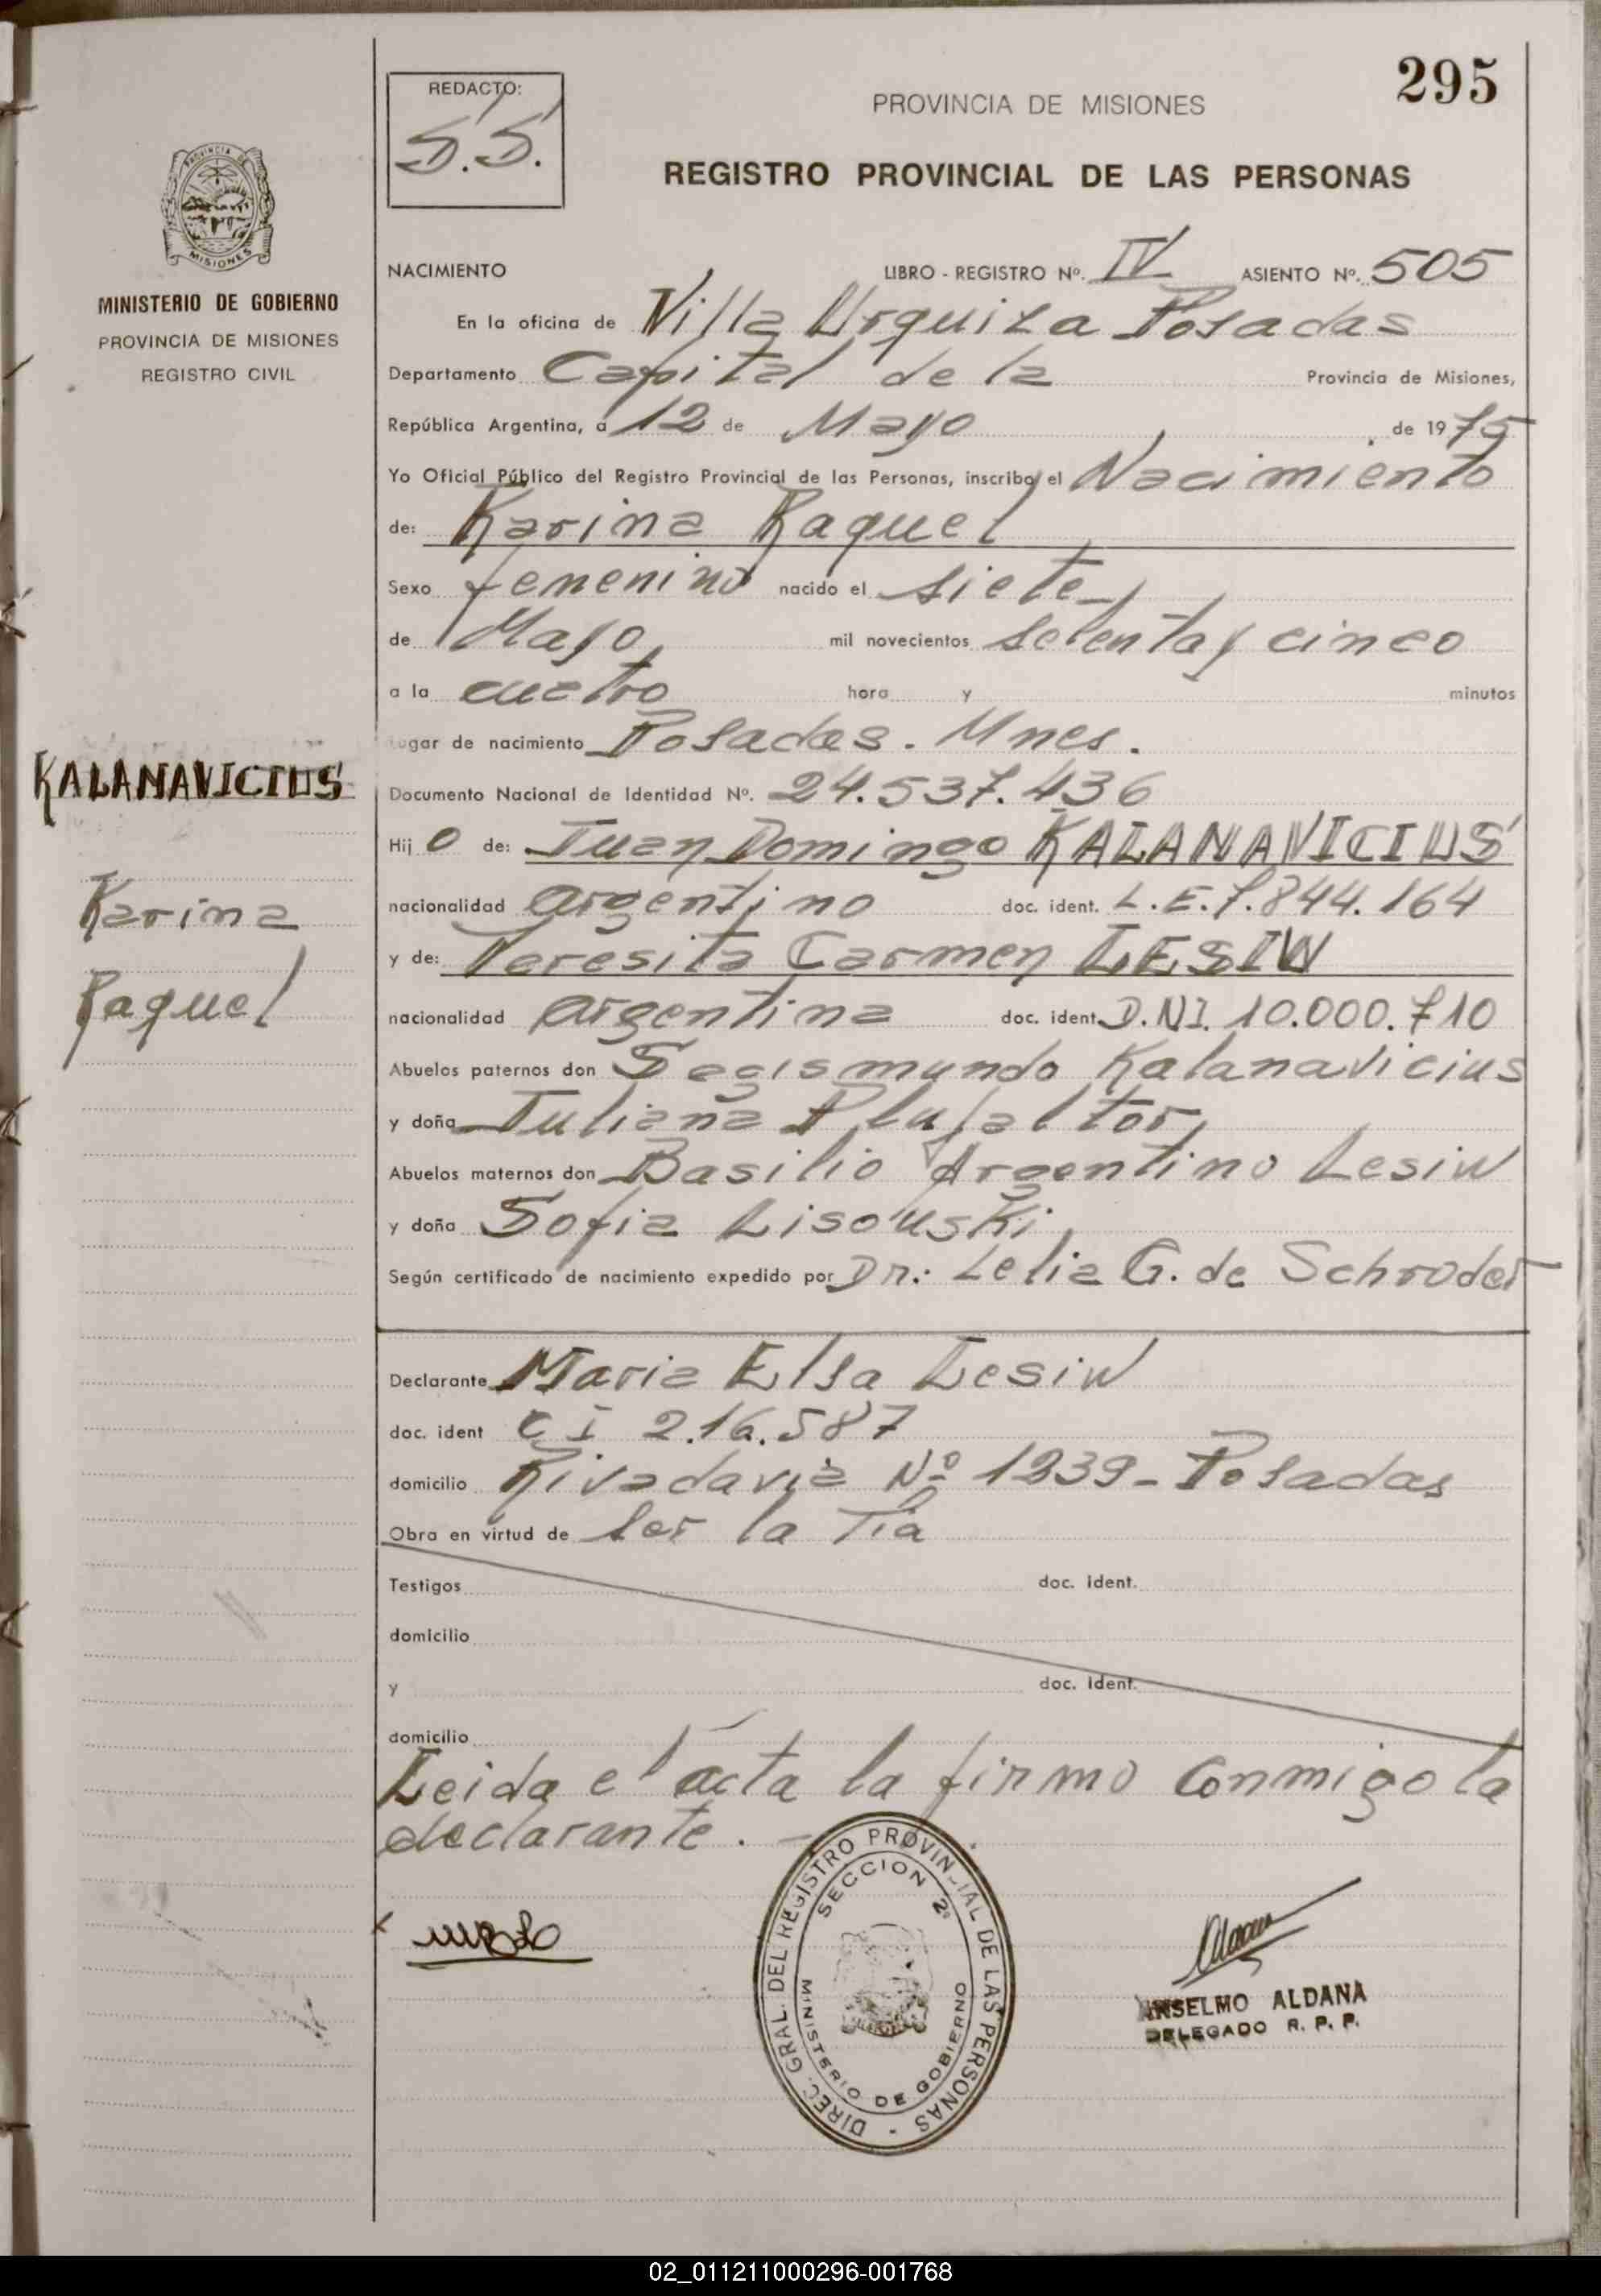 295
REDACTO:
S.S.
PROVINCIA DE MISIONES
REGISTRO PROVINCIAL DE LAS PERSONAS
PROVINCIA DE MISIONES
MINISTERIO DE GOBIERNO
PROVINCIA DE MISIONES
REGISTRO CIVIL
KALANAVICIUS
Karina
Raquel
NACIMIENTO LIBRO - REGISTRO Nº. IV ASIENTO Nº. 505
En la oficina de Villa Urquiza Posadas
Departamento Capital de la Provincia de Misiones,
República Argentina, a 12 de Mayo, de 1975
Yo Oficial Público del Registro Provincial de las Personas, inscribo el Nacimiento
de: Karina Raquel
Sexo femenino nacido el siete
de Mayo mil novecientos setenta y cinco
a la cuatro hora y minutos
Lugar de nacimiento Posadas. Mnes.
Documento Nacional de Identidad Nº. 24.537.436
Hij o de: Juan Domingo KALANAVICIUS
nacionalidad argentino doc. ident. L.E. 7.844.164
y de: Teresita Carmen LESIW
nacionalidad argentina doc. ident. D.N.I. 10.000.710
Abuelos paternos don Segismundo Kalanavicius
y doña Juliana
Abuelos maternos don Basilio Argentino Lesiw
y doña Sofia Lisouski
Según certificado de nacimiento expedido por Dr.: Lelia G. de Schroder
Declarante Maria Elsa Lesiw
doc. ident C I 216.587
domicilio Rivadavia Nº 1239 - Posadas
Obra en virtud de ser la Tia
Testigos doc. ident.
domicilio
y doc. ident.
domicilio
Leida el acta la firmo conmigo la
declarante. -
DIREC. GRAL. DEL REGISTRO PROVINCIAL DE LAS PERSONAS -
SECCION 2ª
MINISTERIO DE GOBIERNO
ANSELMO ALDANA
DELEGADO R. P. P.
02_011211000296-001768